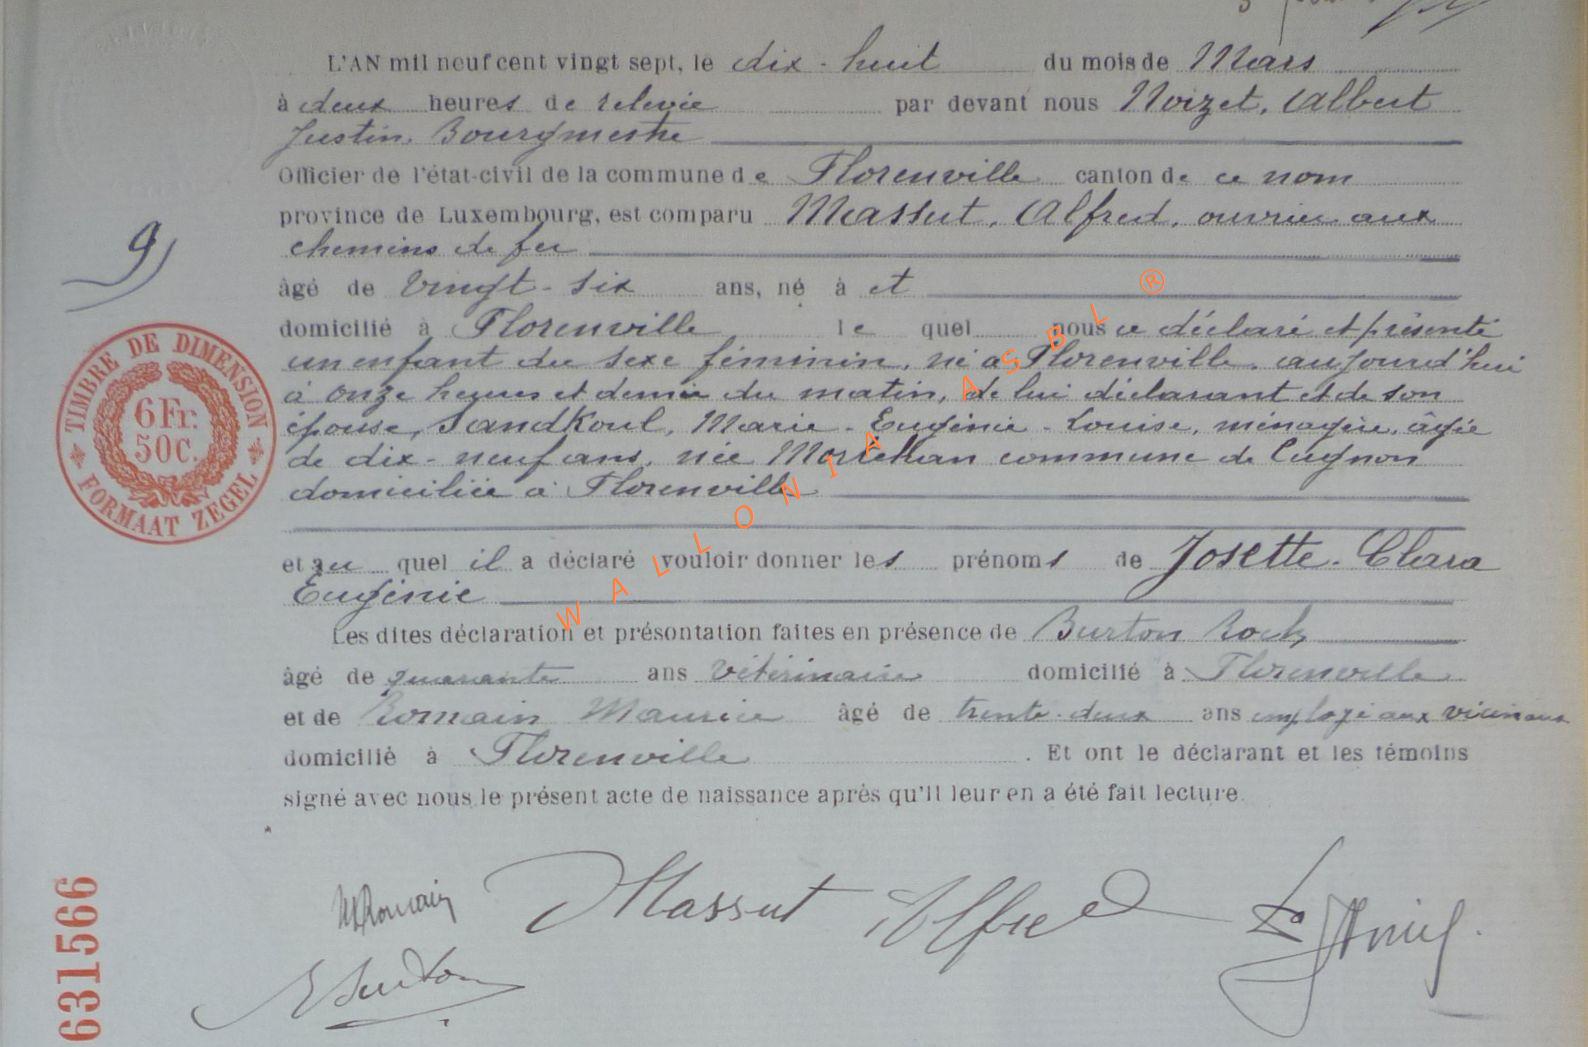 L'AN mil neuf cent vingt sept, le dix-huit du mois de Mars
à deux heures de relevée par devant nous Noizet, Albert
Justin, Bourgmestre
Officier de l'état-civil de la commune de Florenville canton de ce nom
province de Luxembourg, est comparu Massut, Alfred, ouvrier aux
chemins de fer
9)
âgé de vingt-six ans, né à et
domicilié à Florenville le quel nous a déclaré et présenté
un enfant du sexe féminin, né à Florenville, aujourd'hui
à onze heures et demie du matin, de lui déclarant et de son
épouse, Sandkoul, Marie-Eugénie-Louise, ménagère, âgée
de dix-neuf ans, née Mortehan commune de Cugnon
domiciliée à Florenville
et au quel il a déclaré vouloir donner les prénoms de Josette-Clara
Eugénie
Les dites déclaration et présontation faites en présence de Burton Roch
âgé de quarante ans vétérinaire domicilié à Florenville
et de Romain Maurice âgé de trente-deux ans employé aux vicinaux
domicilié à Florenville. Et ont le déclarant et les témoins
signé avec nous le présent acte de naissance après qu'il leur en a été fait lecture.
M Romain
Massut Alfred
Burton
TIMBRE DE DIMENSION
6 Fr.
50 C.
FORMAAT ZEGEL
631566
WALLONIA ASBL ®